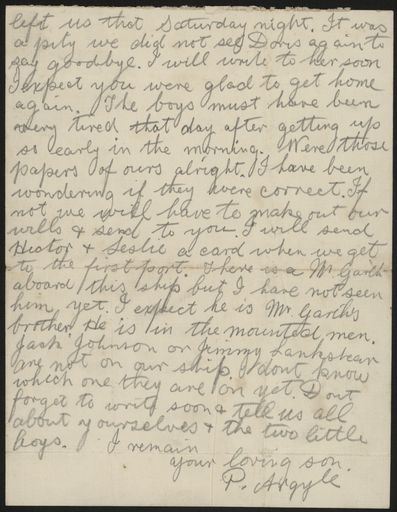 left us that Saturday night. It was
a pity we did not see Doris again to
say goodbye. I will write to her soon
I expect you were glad to get home
again. The boys must have been
very tired that day after getting up
so early in the morning. Were those
papers of ours alright. I have been
wondering if they were correct. If
not we will have to make out our
wills & send to you. I will send
Hector & Leslie a card when we get
to the first port. There is a Mr Garth
aboard this ship but I have not seen
him yet. I expect he is Mr. Garths
brother. He is in the mounted men.
Jack Johnson or Jimmy Lankshear
are not on our ship. I dont know
which one they are on yet. Dont
forget to write soon & tell us all
about yourselves & the two little
boys. I remain
your loving son.
P. Argyle